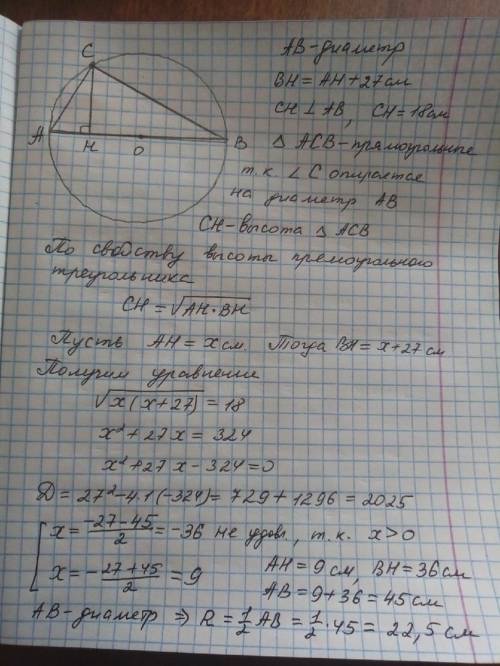 C
A
H
O
B
AB-диаметр
BH = AH + 27 см
CH ⊥ AB, CH = 18 см
△ ACB - прямоугольные
т.к. ∠C опирается
на диаметр AB
CH - высота △ ACB
По свойству высоты прямоугольного
треугольника
CH = √AH·BH
Пусть AH = x см. Тогда BH = x + 27 см
Получим уравнение
√x(x+27) = 18
x² + 27x = 324
x² + 27x - 324 = 0
D = 27² - 4·1·(-324) = 729 + 1296 = 2025
x = (-27-45)/2 = -36 не удовл., т.к. x > 0
x = -(27+45)/2 = 9
AH = 9 см, BH = 36 см
AB = 9 + 36 = 45 см
AB - диаметр ⇒ R = 1/2 AB = 1/2 · 45 = 22,5 см